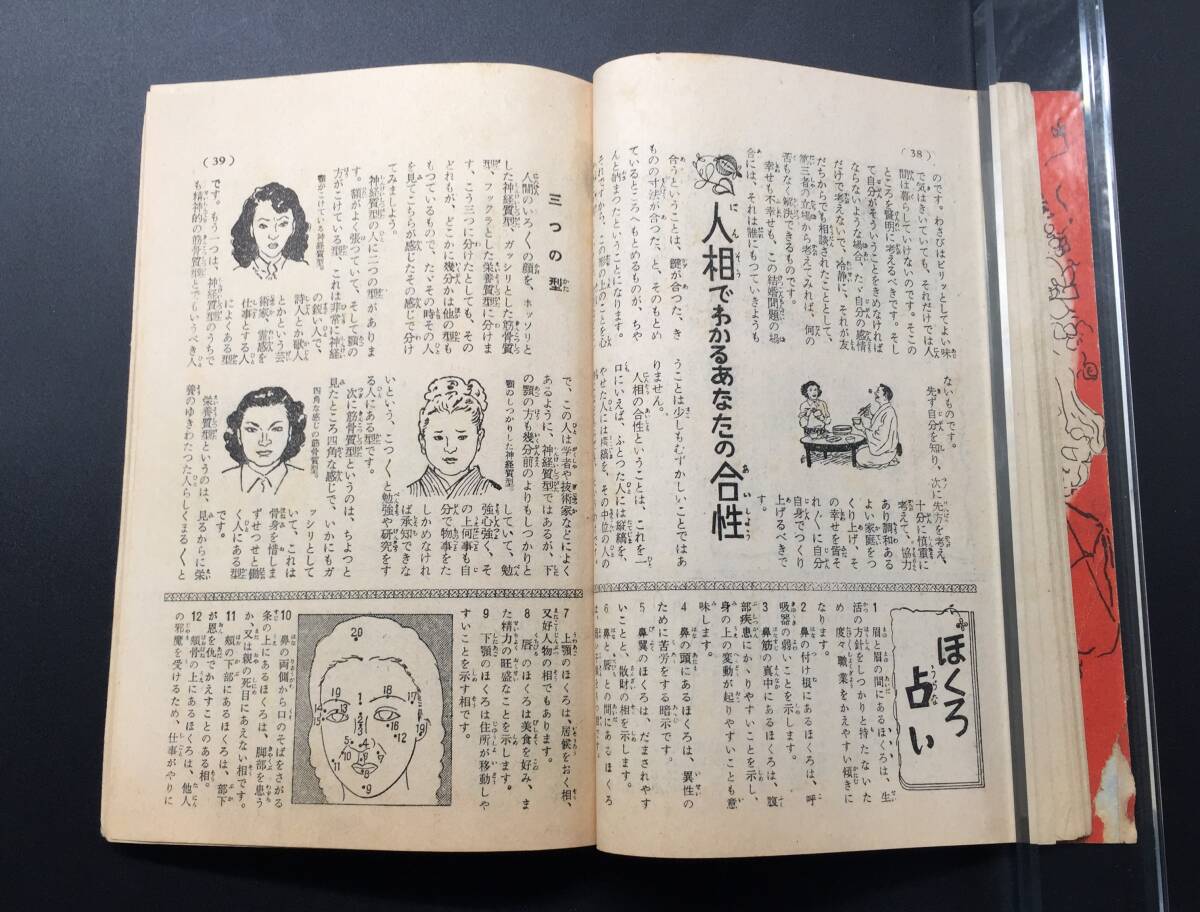 (38)
のです。わさびはピリッとしてよい味
で気はきいていても、それだけでは人
間は暮らしていけないのです。そこの
ところを賢明に考えるべきです。そし
て自分がそういうことをきめなければ
ならないような場合、たゞ自分の感情
だけで考えないで、冷静に、それが友
だちからでも相談されたこととして、
第三者の立場から考えてみれば、何の
苦もなく解決できるものです。
幸せも不幸せも、この結婚問題の場
合には、それは誰にもつていきようも
ないものです。
先ず自分を知り、次に先方を考え、
十分に慎重に
考えて、協力
あり調和ある
よい家庭をつ
くり上げ、そ
の幸せを皆そ
れ〲に自分
自身でつくり
上げるべきで
す。
人相でわかるあなたの合性
にんそう
あいしよう
合うということは、鍵が合つた、き
ものの寸法が合つた、と、そのもとめ
ているところへもとめるものが、ちや
んと納まつたということになります。
うことは少しもむずかしいことではあ
りません。
人相の合性ということは、これを一
口にいえば、ふとつた人には縦縞を、
やせた人には横縞を、その中位の人の
ほくろ占い
うらな
1 眉と眉の間にあるほくろは、生
活の方針をしつかりと持たないた
め度々職業をかえやすい傾きに
なります。
2 鼻の付け根にあるほくろは、呼
吸器の弱いことを示します。
3 鼻筋の真中にあるほくろは、腹
部疾患にかゝりやすいことを示し、
身の上の変動が起りやすいことも意
味します。
4 鼻の頭にあるほくろは、異性の
ために苦労をする暗示です。
5 鼻翼のほくろは、だまされやす
いことと、散財の相を示します。
6 鼻と唇との間にあるほくろ
(39)
三つの型
かた
人間のいろ〱の顔を、ホッソリと
した神経質型、ガッシリとした筋骨質
型、フックラとした栄養質型に分けま
す、こう三つに分けたとしても、その
どれもが、どこかに幾分かは他の型も
もつているもので、たゞその時その人
を見てこちらが感じたその感じで分け
てみましよう。
神経質型の人に二つの型がありま
す。額がよく張つていて、そして顎の
方がこけている型、これは非常に神経
の鋭い人で、
詩人とか歌人
とかという芸
術家、霊感を
仕事とする人
によくある型
です。もう一つは、神経質型のうちで
も精神的の筋骨質型とでもいうべき人
顎がこけている神経質型。
で、この人は学者や技術家などによく
あるように、神経質型ではあるが、下
の顎の方も幾分前のよりもしつかりと
していて、勉
強心強く、そ
の上何事も自
分で物事をた
しかめなけれ
ば承知できな
いという、こつ〱と勉強や研究をす
る人にある型です。
顎のしつかりした神経質型。
次に筋骨質型というのは、ちよつと
見たところ四角な感じで、いかにもガ
ッシリとして
いて、これは
骨身を惜しま
ずせつせと働
く人にある型
です。
四角な感じの筋骨質型。
栄養質型というのは、見るからに栄
養のゆきわたつた人らしくまるく〱と
7 上顎のほくろは、居候をおく相、
又好人物の相でもあります。
8 唇のほくろは美食を好み、ま
た精力の旺盛なことを示します。
9 下顎のほくろは住所が移動しや
すいことを示す相です。
20
10 鼻の両側から口のそばをさがる
条の上にあるほくろは、脚部を患う
か、又は親の死目にあえない相です。
11 頬の下部にあるほくろは、部下
が恩を仇でかえすことのある相。
12 頬骨の上にあるほくろは、他人
の邪魔を受けるため、仕事がやりに